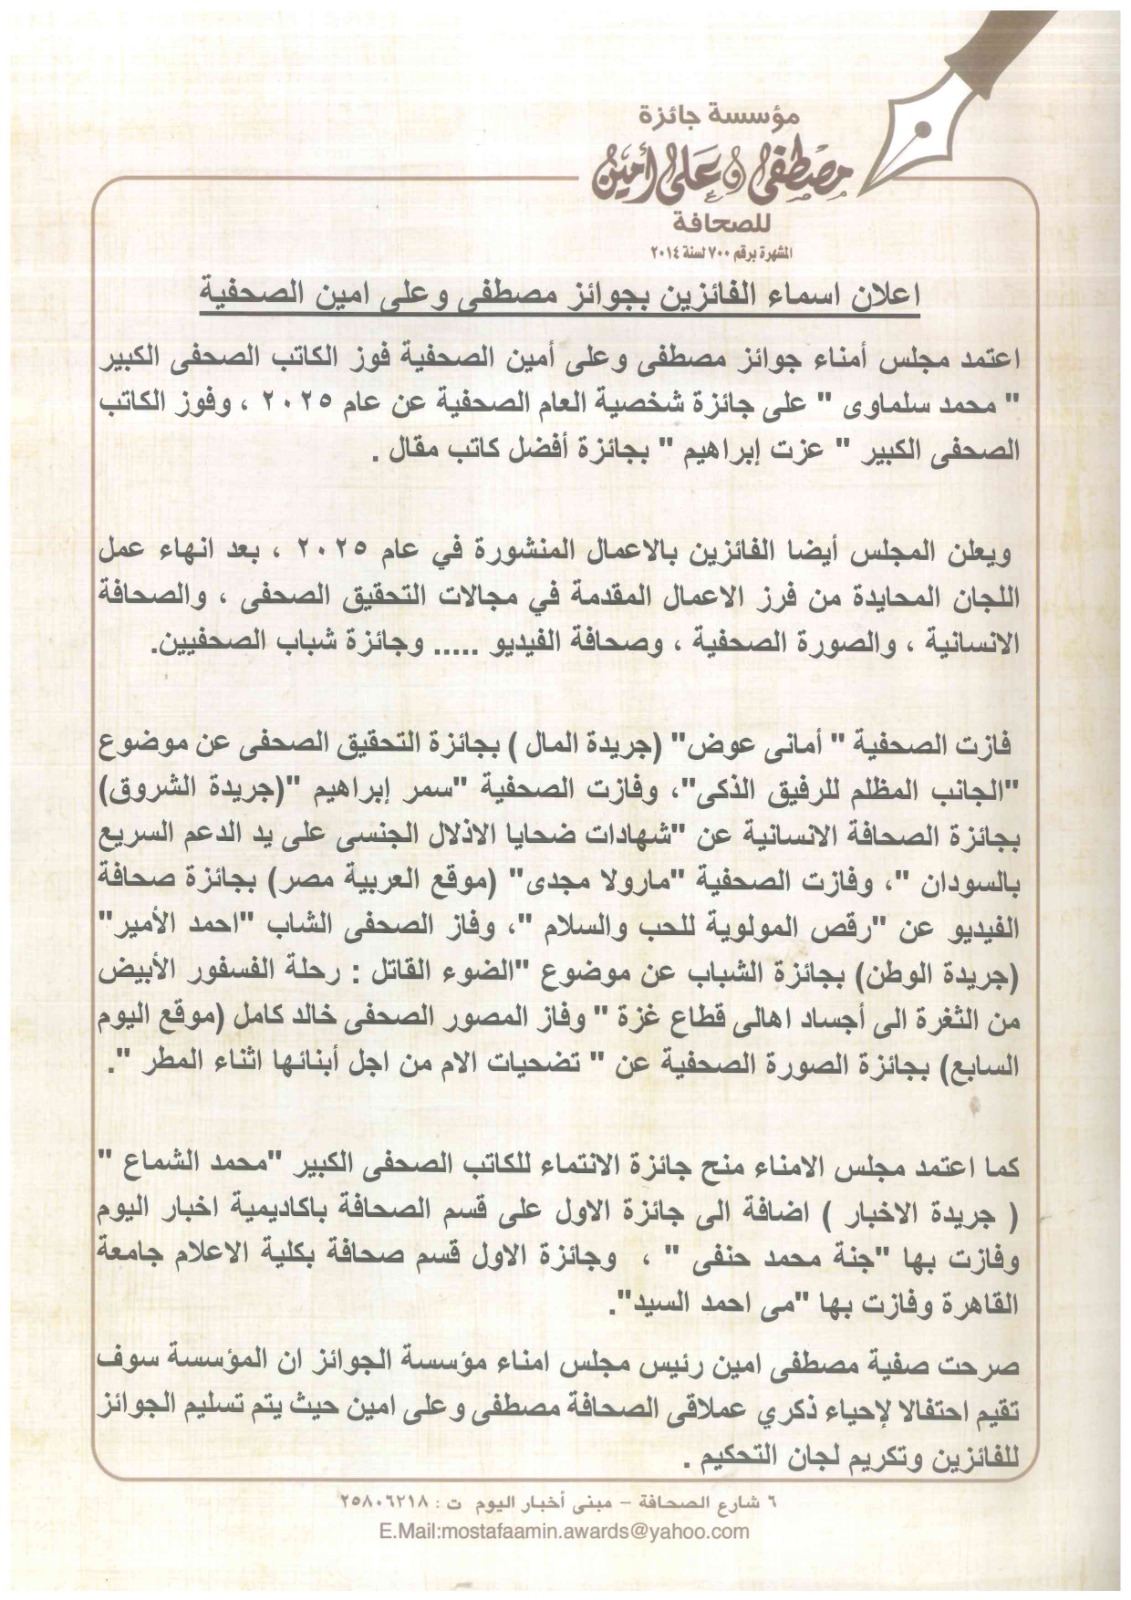 مؤسسة جائزة
مصطفى و على أمين
للصحافة
المشهرة برقم ٧٠٠ لسنة ٢٠١٤
اعلان اسماء الفائزين بجوائز مصطفى وعلى امين الصحفية
اعتمد مجلس أمناء جوائز مصطفى وعلى أمين الصحفية فوز الكاتب الصحفى الكبير
" محمد سلماوى " على جائزة شخصية العام الصحفية عن عام ٢٠٢٥ ، وفوز الكاتب
الصحفى الكبير " عزت إبراهيم " بجائزة أفضل كاتب مقال .
ويعلن المجلس أيضا الفائزين بالاعمال المنشورة في عام ٢٠٢٥ ، بعد انهاء عمل
اللجان المحايدة من فرز الاعمال المقدمة في مجالات التحقيق الصحفى ، والصحافة
الانسانية ، والصورة الصحفية ، وصحافة الفيديو ..... وجائزة شباب الصحفيين.
فازت الصحفية " أمانى عوض" (جريدة المال ) بجائزة التحقيق الصحفى عن موضوع
"الجانب المظلم للرفيق الذكى"، وفازت الصحفية "سمر إبراهيم "(جريدة الشروق)
بجائزة الصحافة الانسانية عن "شهادات ضحايا الاذلال الجنسى على يد الدعم السريع
بالسودان "، وفازت الصحفية "مارولا مجدى" (موقع العربية مصر) بجائزة صحافة
الفيديو عن "رقص المولوية للحب والسلام "، وفاز الصحفى الشاب "احمد الأمير"
(جريدة الوطن) بجائزة الشباب عن موضوع "الضوء القاتل : رحلة الفسفور الأبيض
من الثغرة الى أجساد اهالى قطاع غزة " وفاز المصور الصحفى خالد كامل (موقع اليوم
السابع) بجائزة الصورة الصحفية عن " تضحيات الام من اجل أبنائها اثناء المطر ".
كما اعتمد مجلس الامناء منح جائزة الانتماء للكاتب الصحفى الكبير "محمد الشماع "
( جريدة الاخبار ) اضافة الى جائزة الاول على قسم الصحافة باكاديمية اخبار اليوم
وفازت بها "جنة محمد حنفى " ، وجائزة الاول قسم صحافة بكلية الاعلام جامعة
القاهرة وفازت بها "مى احمد السيد".
صرحت صفية مصطفى امين رئيس مجلس امناء مؤسسة الجوائز ان المؤسسة سوف
تقيم احتفالا لإحياء ذكري عملاقى الصحافة مصطفى وعلى امين حيث يتم تسليم الجوائز
للفائزين وتكريم لجان التحكيم .
٦ شارع الصحافة – مبنى أخبار اليوم ت : ٢٥٨٠٦٢١٨
E.Mail:mostafaamin.awards@yahoo.com